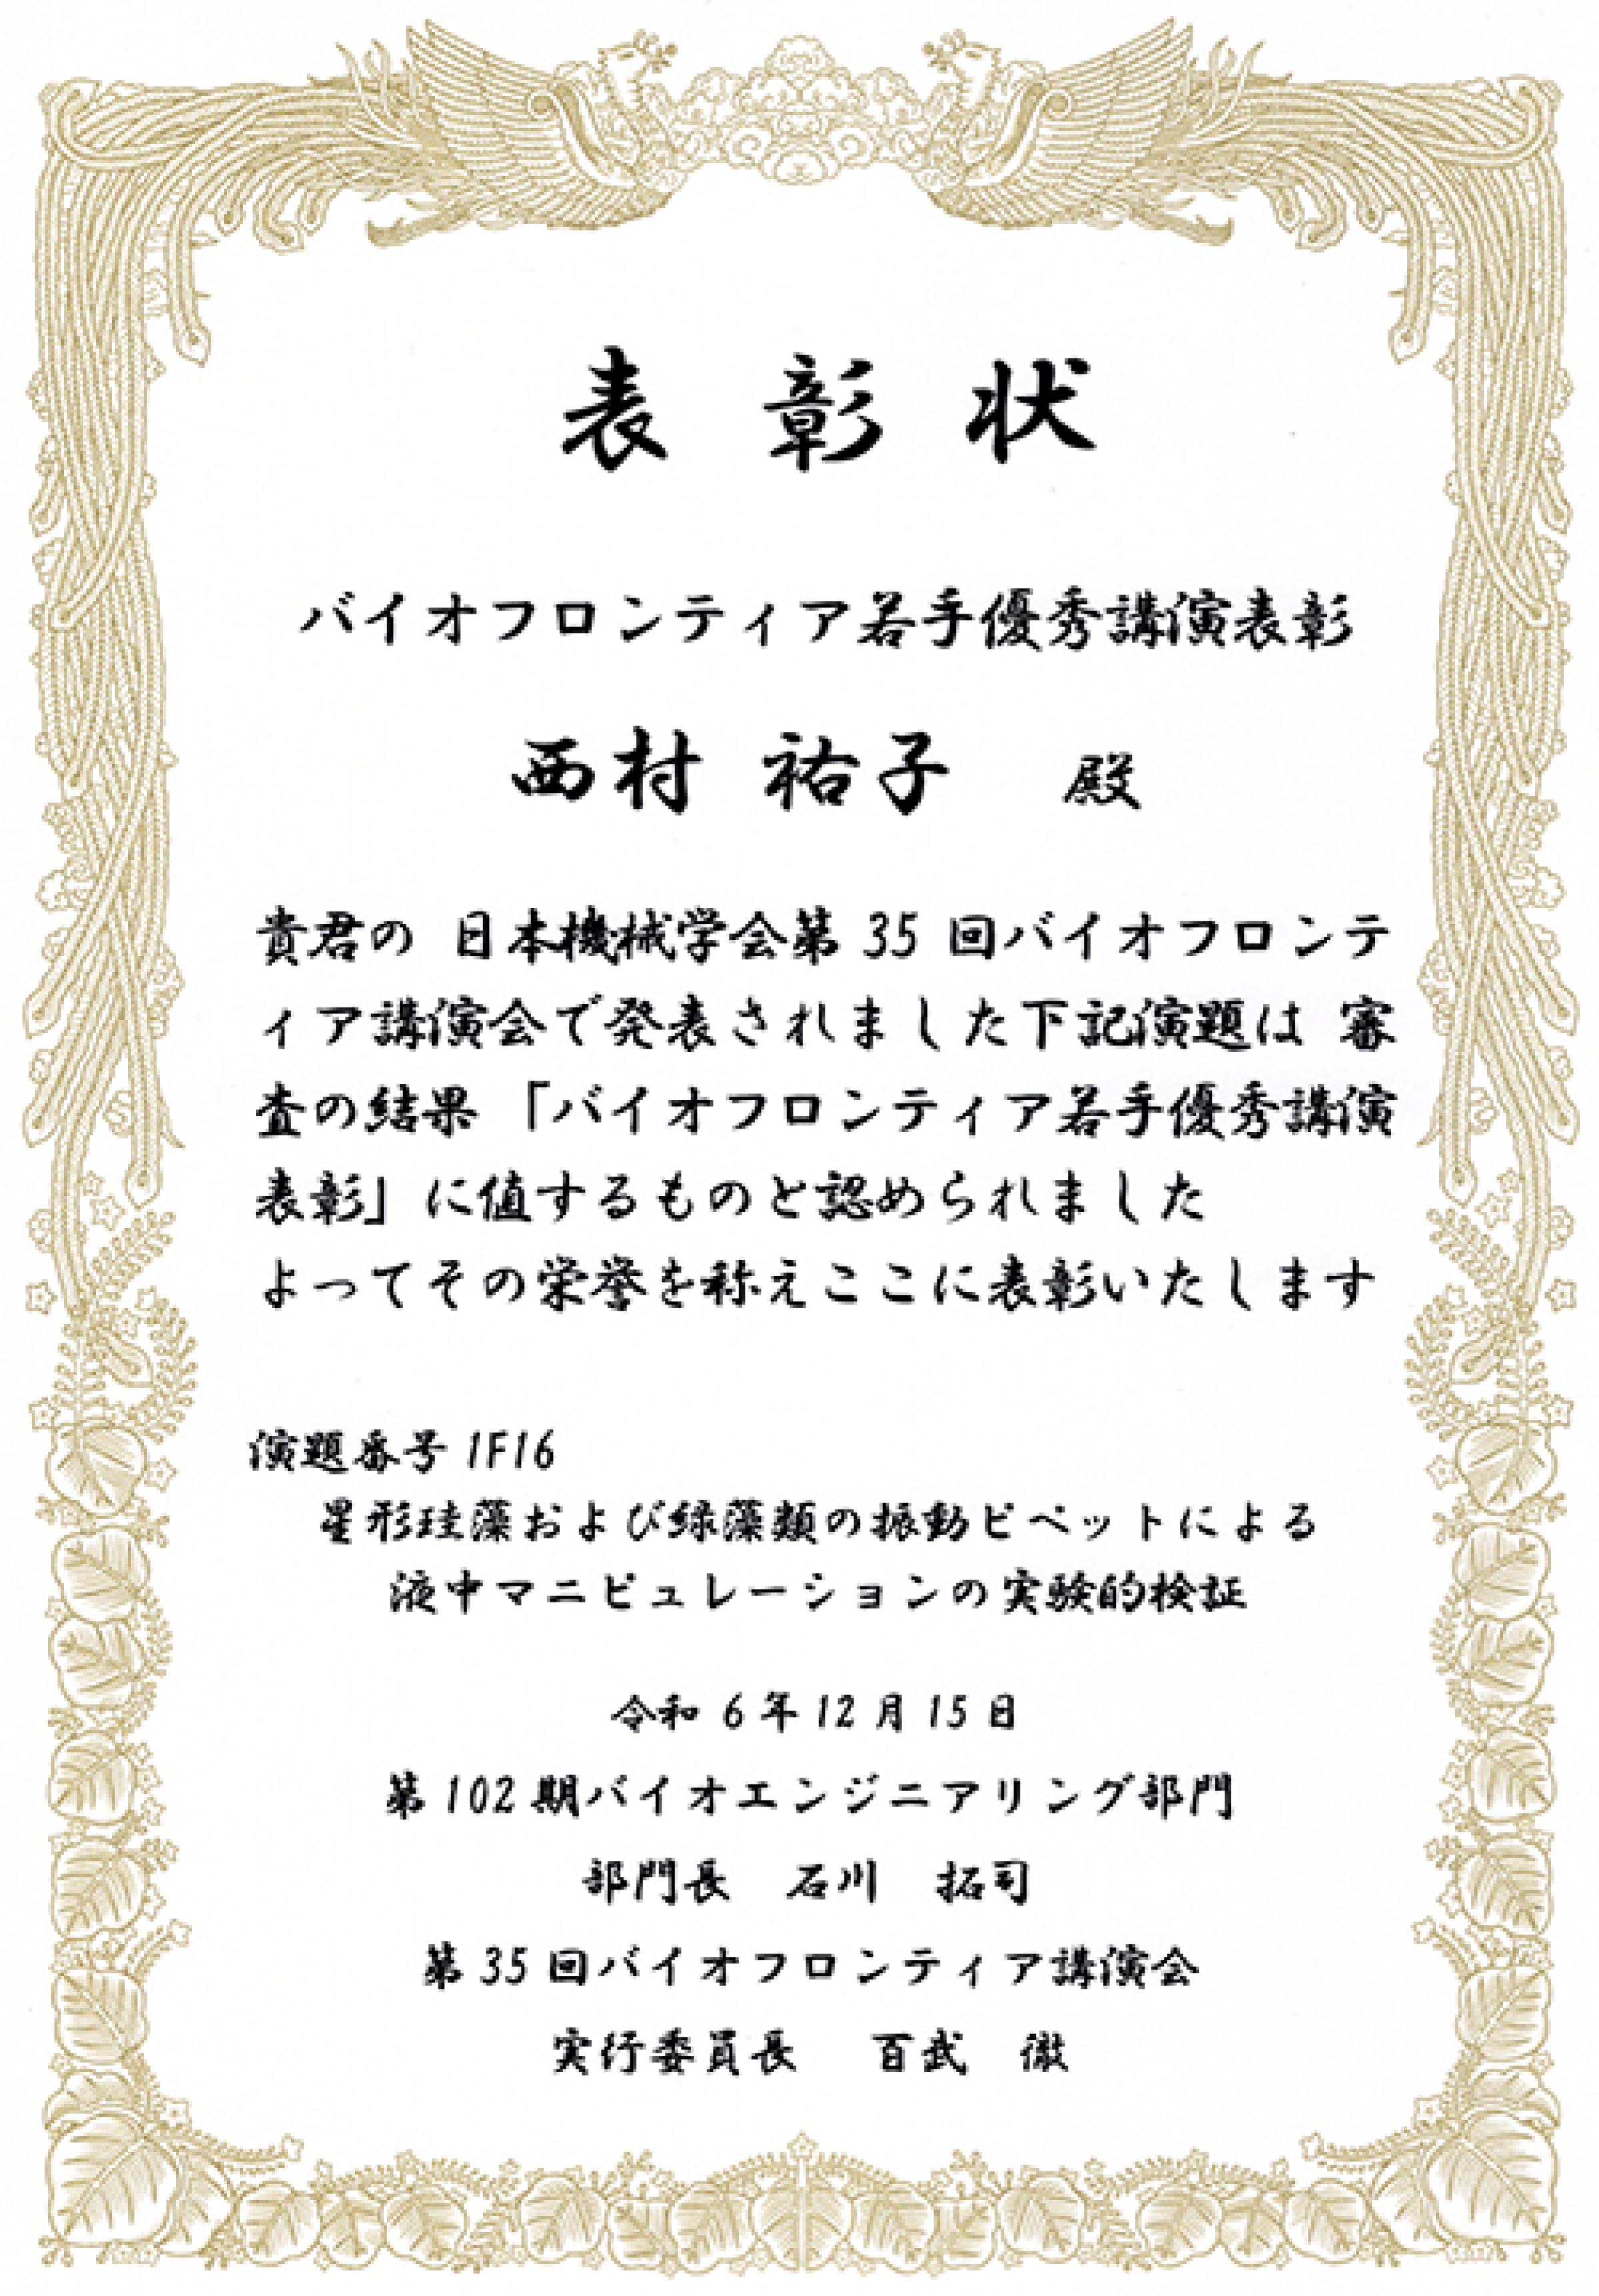 表彰状
バイオフロンティア若手優秀講演表彰
西村 祐子 殿
貴君の 日本機械学会第 35 回バイオフロンテ
ィア講演会で発表されました下記演題は 審
査の結果 「バイオフロンティア若手優秀講演
表彰」に値するものと認められました
よってその栄誉を称えここに表彰いたします
演題番号 1F16
星形珪藻および緑藻類の振動ピペットによる
液中マニピュレーションの実験的検証
令和 6 年 12 月 15 日
第 102 期バイオエンジニアリング部門
部門長 石川 拓司
第 35 回バイオフロンティア講演会
実行委員長 百武 徹